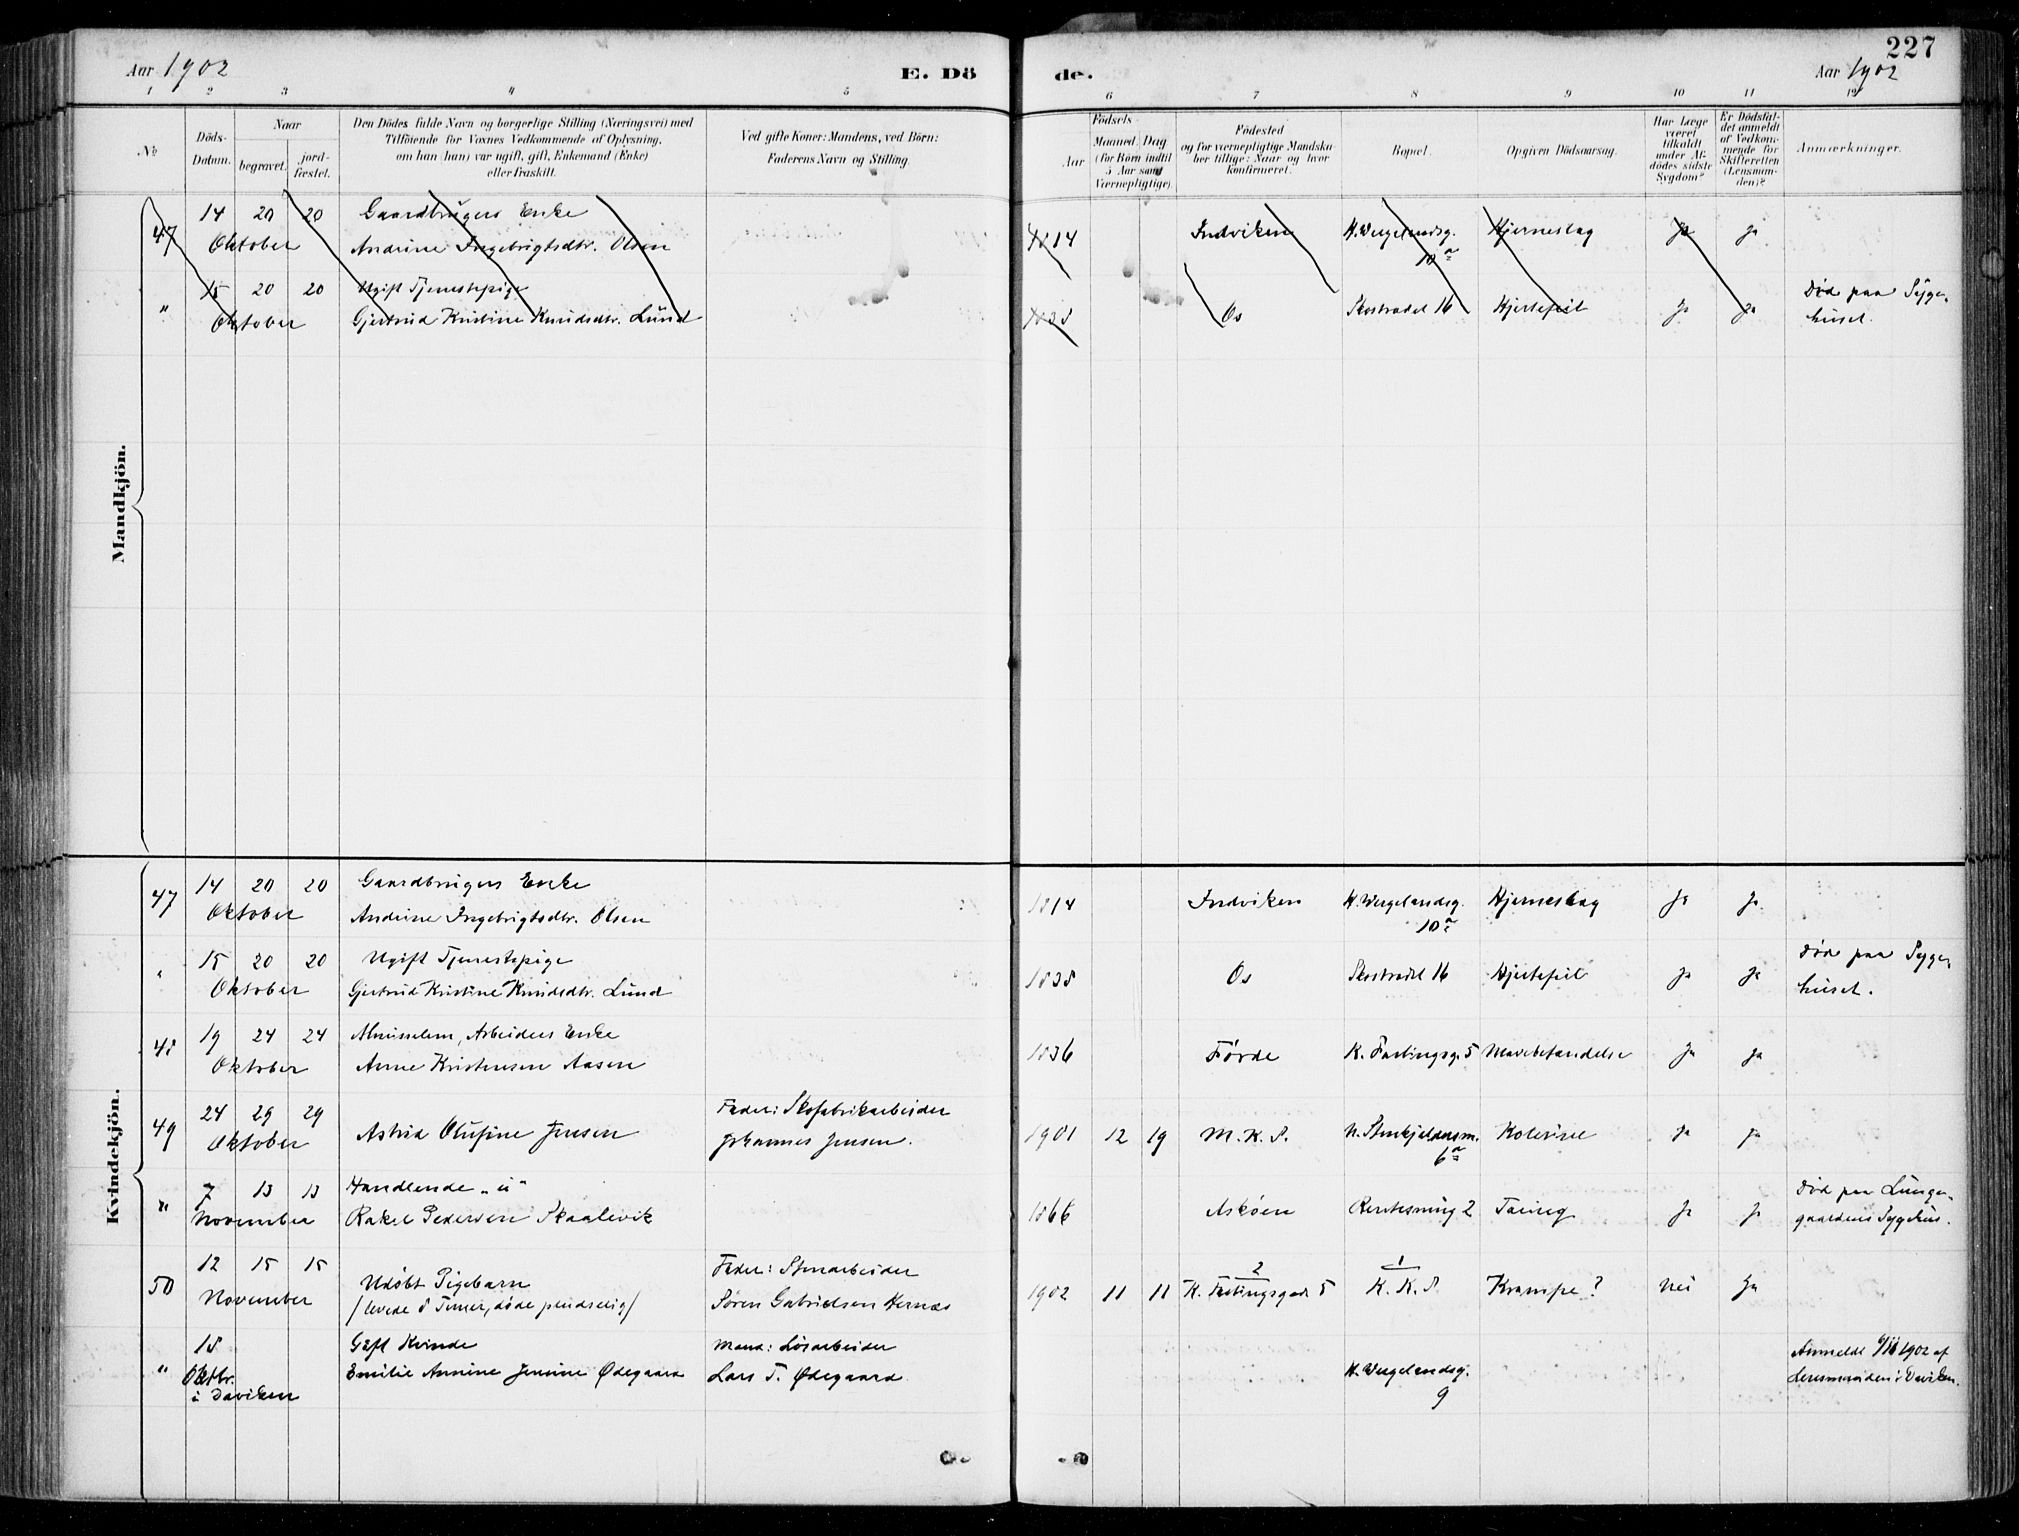 227
Aar 1902
E. Dö
de.
Aar 1902
1 2 3 4 5
6 7 8 9 10 11 12
No
Döds-
Datum.
Naar
begravet.
jord-
fæstet.
Den Dödes fulde Navn og borgerlige Stilling (Næringsvei) med
Tilföiende for Voxnes Vedkommende af Oplysning,
om han (hun) var ugift, gift, Enkemand (Enke)
eller fraskilt.
Ved gifte Koner: Mandens, ved Börn:
Faderens Navn og Stilling.
Födsels-
Aar
Maaned Dag
(for Börn indtil
5 Aar samt
Værnepligtige).
Födested
og for værnepligtige Mandska-
ber tillige: Naar og hvor
konfirmeret.
Bopæl.
Opgiven Dödsaarsag.
Har Læge
været
tilkaldt
under Af-
dödes sidste
Sygdom?
Er Dödsfal-
det anmeldt
af Vedkom-
mende for
Skifteretten
(Lensman-
den)?
Anmærkninger.
Mandkjön.
47 14 20 20 Oktober
Gaardbrugers Enke
Andrine Ingebrigtsdtr. Olsen
1814 Indviken H. Wergelandsg. 10a Hjerneslag Ja Ja
" 15 20 20 Oktober
Ugift Tjenestepige
Gjertrud Kristine Knudsdtr. Lund
1838 Os Skostrædet 16 Hjertefeil Ja Ja
Död paa Syge-
huset.
Kvindekjön.
47 14 20 20 Oktober
Gaardbrugers Enke
Andrine Ingebrigtsdtr. Olsen
1814 Indviken H. Wergelandsg. 10a Hjerneslag Ja Ja
" 15 20 20 Oktober
Ugift Tjenestepige
Gjertrud Kristine Knudsdtr. Lund
1838 Os Skostrædet 16 Hjertefeil Ja Ja
Død paa Syge-
huset.
48 19 24 24 Oktober
Almisselem, Arbeiders Enke
Anne Kristensen Aasen
1836 Förde K. Fastingsg. 5 Mavebetændelse Ja Ja
49 24 29 29 Oktober
Astrid Olufine Jensen
Fader: Skofabrikarbeider
Johannes Jensen.
1901 12 19 M. K. S. N. Stenkjeldersm. 6a Kolerine Ja Ja
" 7 13 13 November
Handlende "u"
Rakel Pedersen Skaalevik
1866 Askøen Rentesmug 2 Tæring Ja Ja
Død paa Lunge-
gaardens Sygehus.
50 12 15 15 November
Udøbt Pigebarn
/levede 8 Timer, døde pludselig/
Fader: Stenarbeider
Søren Gabrielsen Hernæs
1902 11 11 2 K. Fastingsgad. 5 1 K. K. S. Krampe? Nei Ja
" 18 Oktbr. i Daviken
Gift Kvinde
Emilie Annine Jensine Ødegaard
Mand: Løsarbeider
Lars T. Ødegaard.
H. Wergelandsg. 9
Anmeldt 1902 af
Lensmanden i Daviken.